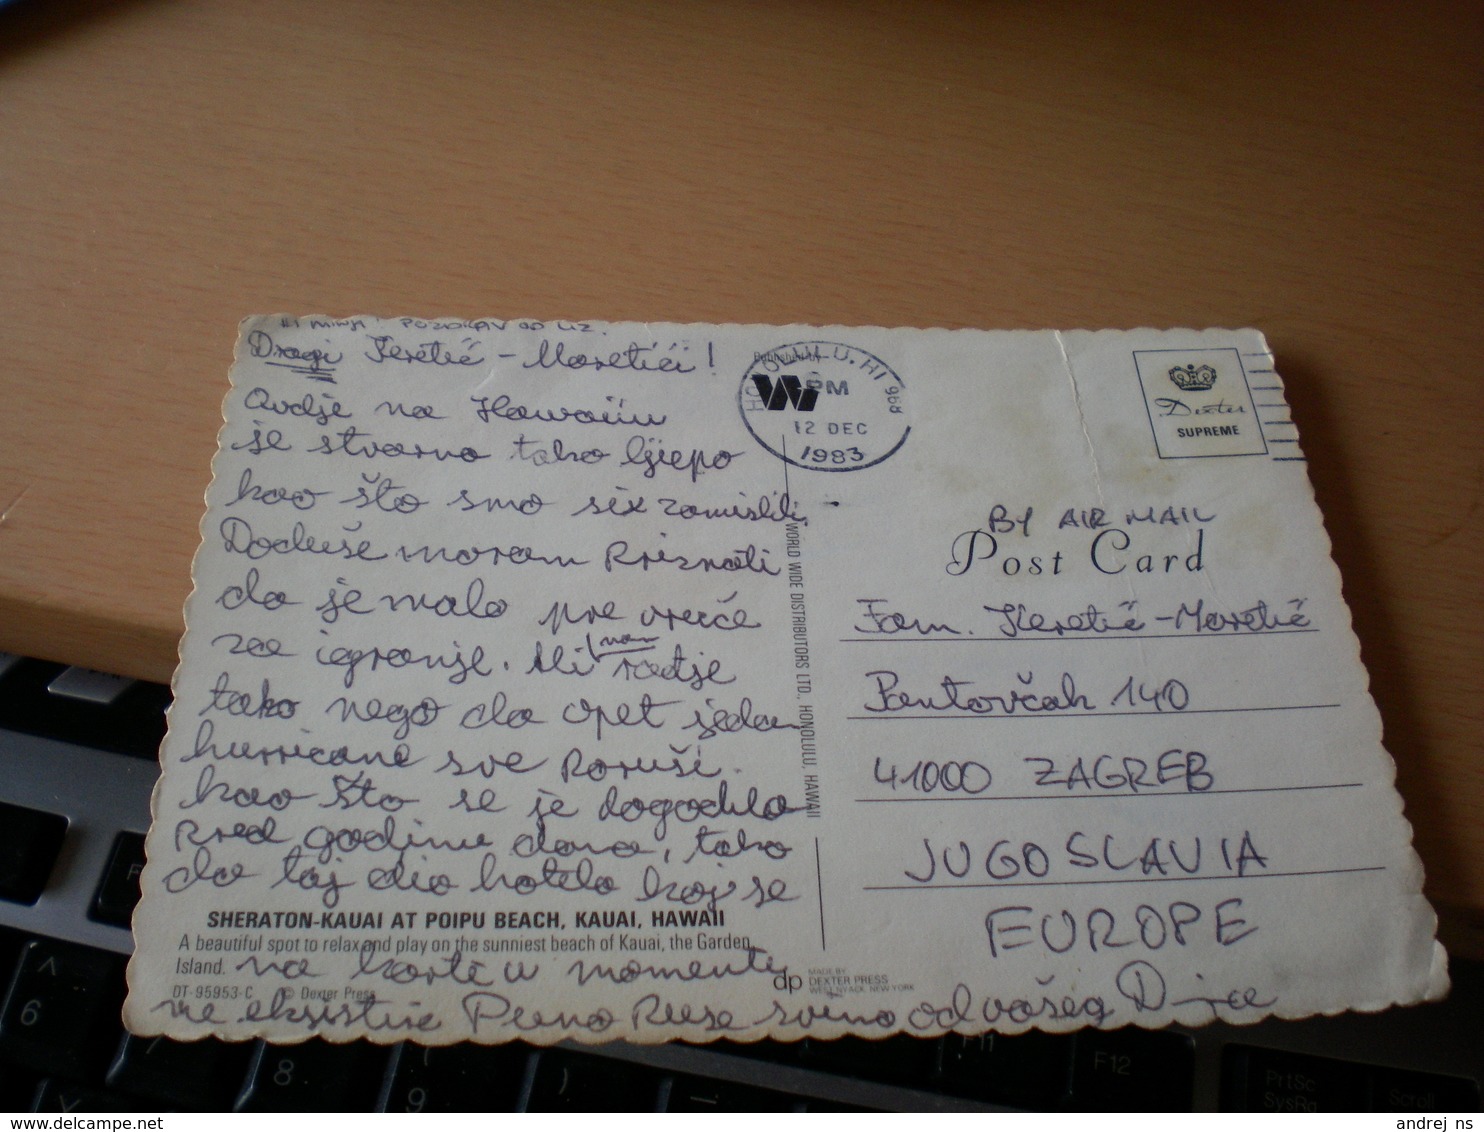 HI POZDRAV OD LIZ.
Dragi Keretić - Moretići!
Ovdje na Hawaiiu
je stvarno tako lijepo
kao što smo si zamislili.
Doduše moram priznati
da je malo pre vruće
za igranje. Mi nam radije
tako nego da opet jedan
hurricane sve poruši.
kao što se je dogodilo
pred godinu dana, tako
da taj dio hotela koj se
SHERATON-KAUAI AT POIPU BEACH, KAUAI, HAWAII
A beautiful spot to relax and play on the sunniest beach of Kauai, the Garden
Island.
na karti u momentu
DT-95953-C © Dexter Press
ne eksistira Puno Puse svima od vašeg
Published by
HONOLULU, HI 968
PM
12 DEC
1983
WORLD WIDE DISTRIBUTORS LTD. HONOLULU, HAWAII
dp MADE BY
DEXTER PRESS
WEST NYACK, NEW YORK
Dexter
SUPREME
BY AIR MAIL
Post Card
Fam. Keretić - Moretić
Pantovčak 140
41000 ZAGREB
JUGOSLAVIA
EUROPE
6
8
9
)
F11
F12
PrtSc
SysRq
Scroll
andrej ns